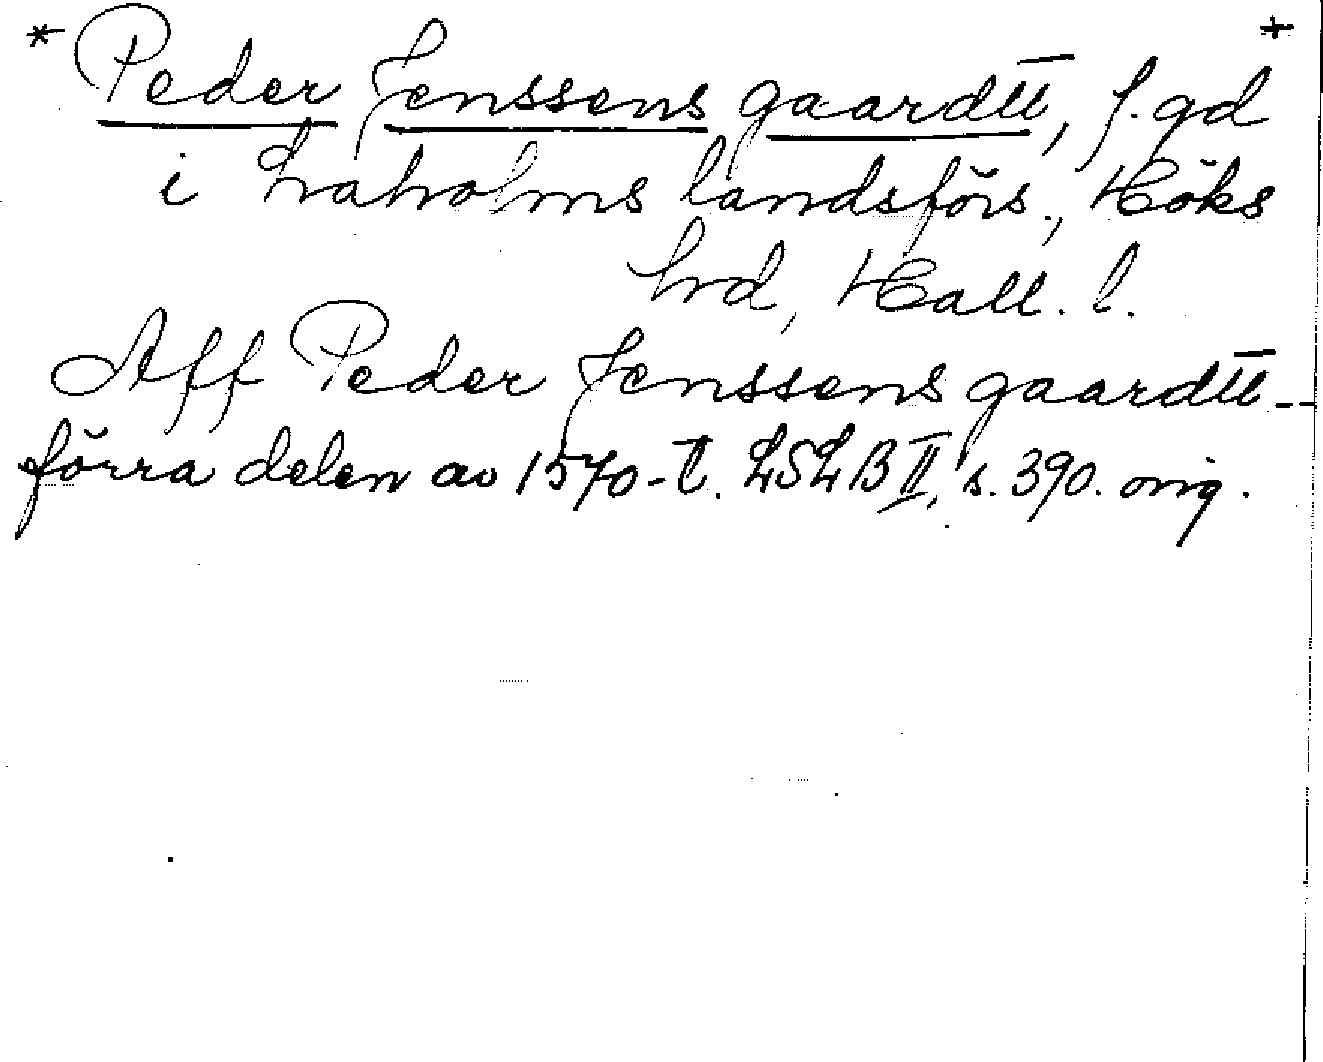 * Peder Jenssens gaardtt, f. gd +
i Laholms landsförs., Höks
hrd, Hall. l.
Aff Peder Jenssens gaardtt --
förra delen av 1570-t. LSLB II, s. 390. orig.